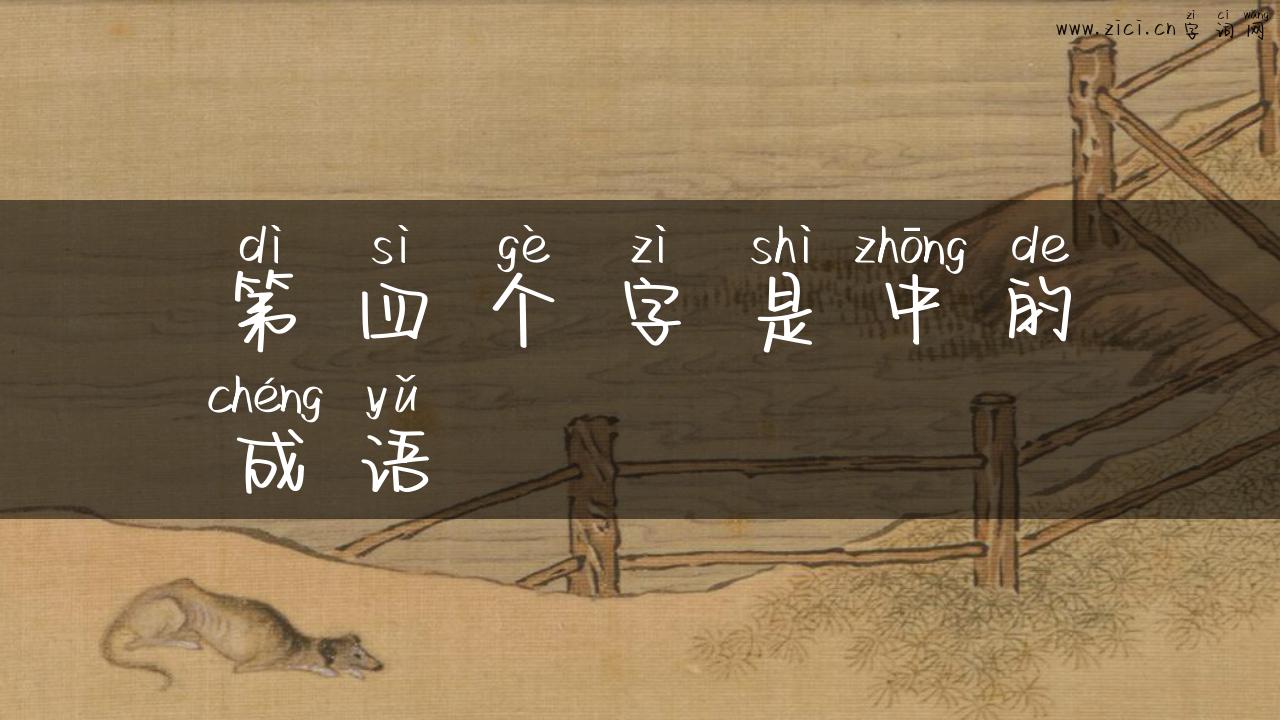 zi ci wang
www.zici.cn 字词网
dì sì gè zì shì zhōng de
第四个字是中的
chéng yǔ
成语